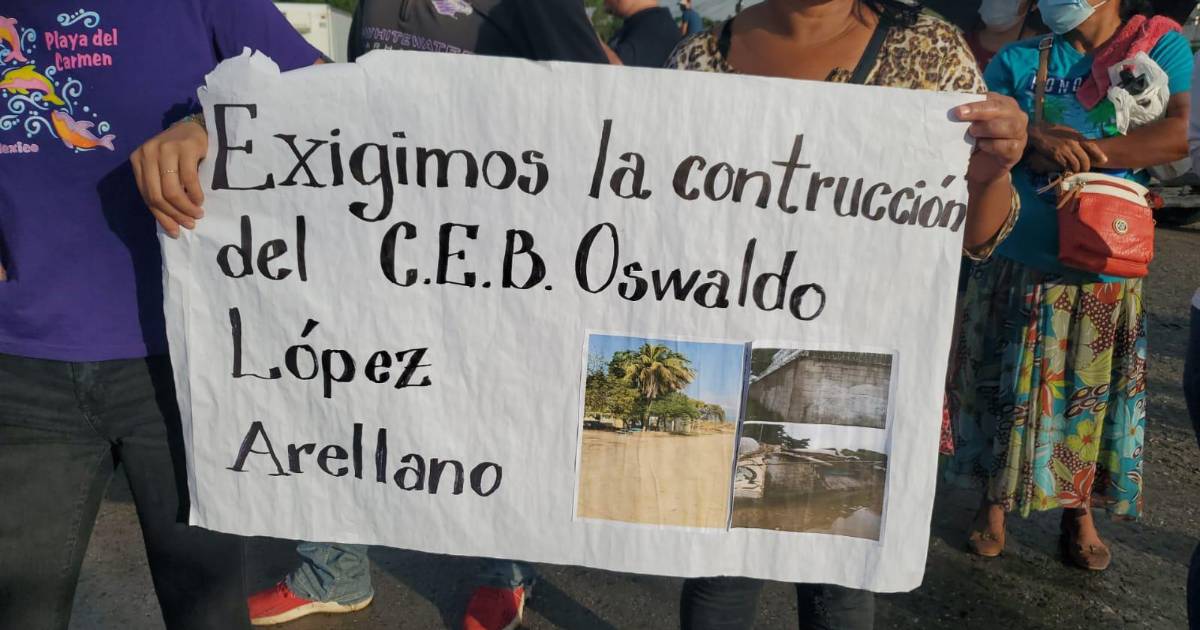 Playa del
Carmen
Mexico
WHITEWATER
Exigimos la contrucción
del C.E.B. Oswaldo
López
Arellano
HONO